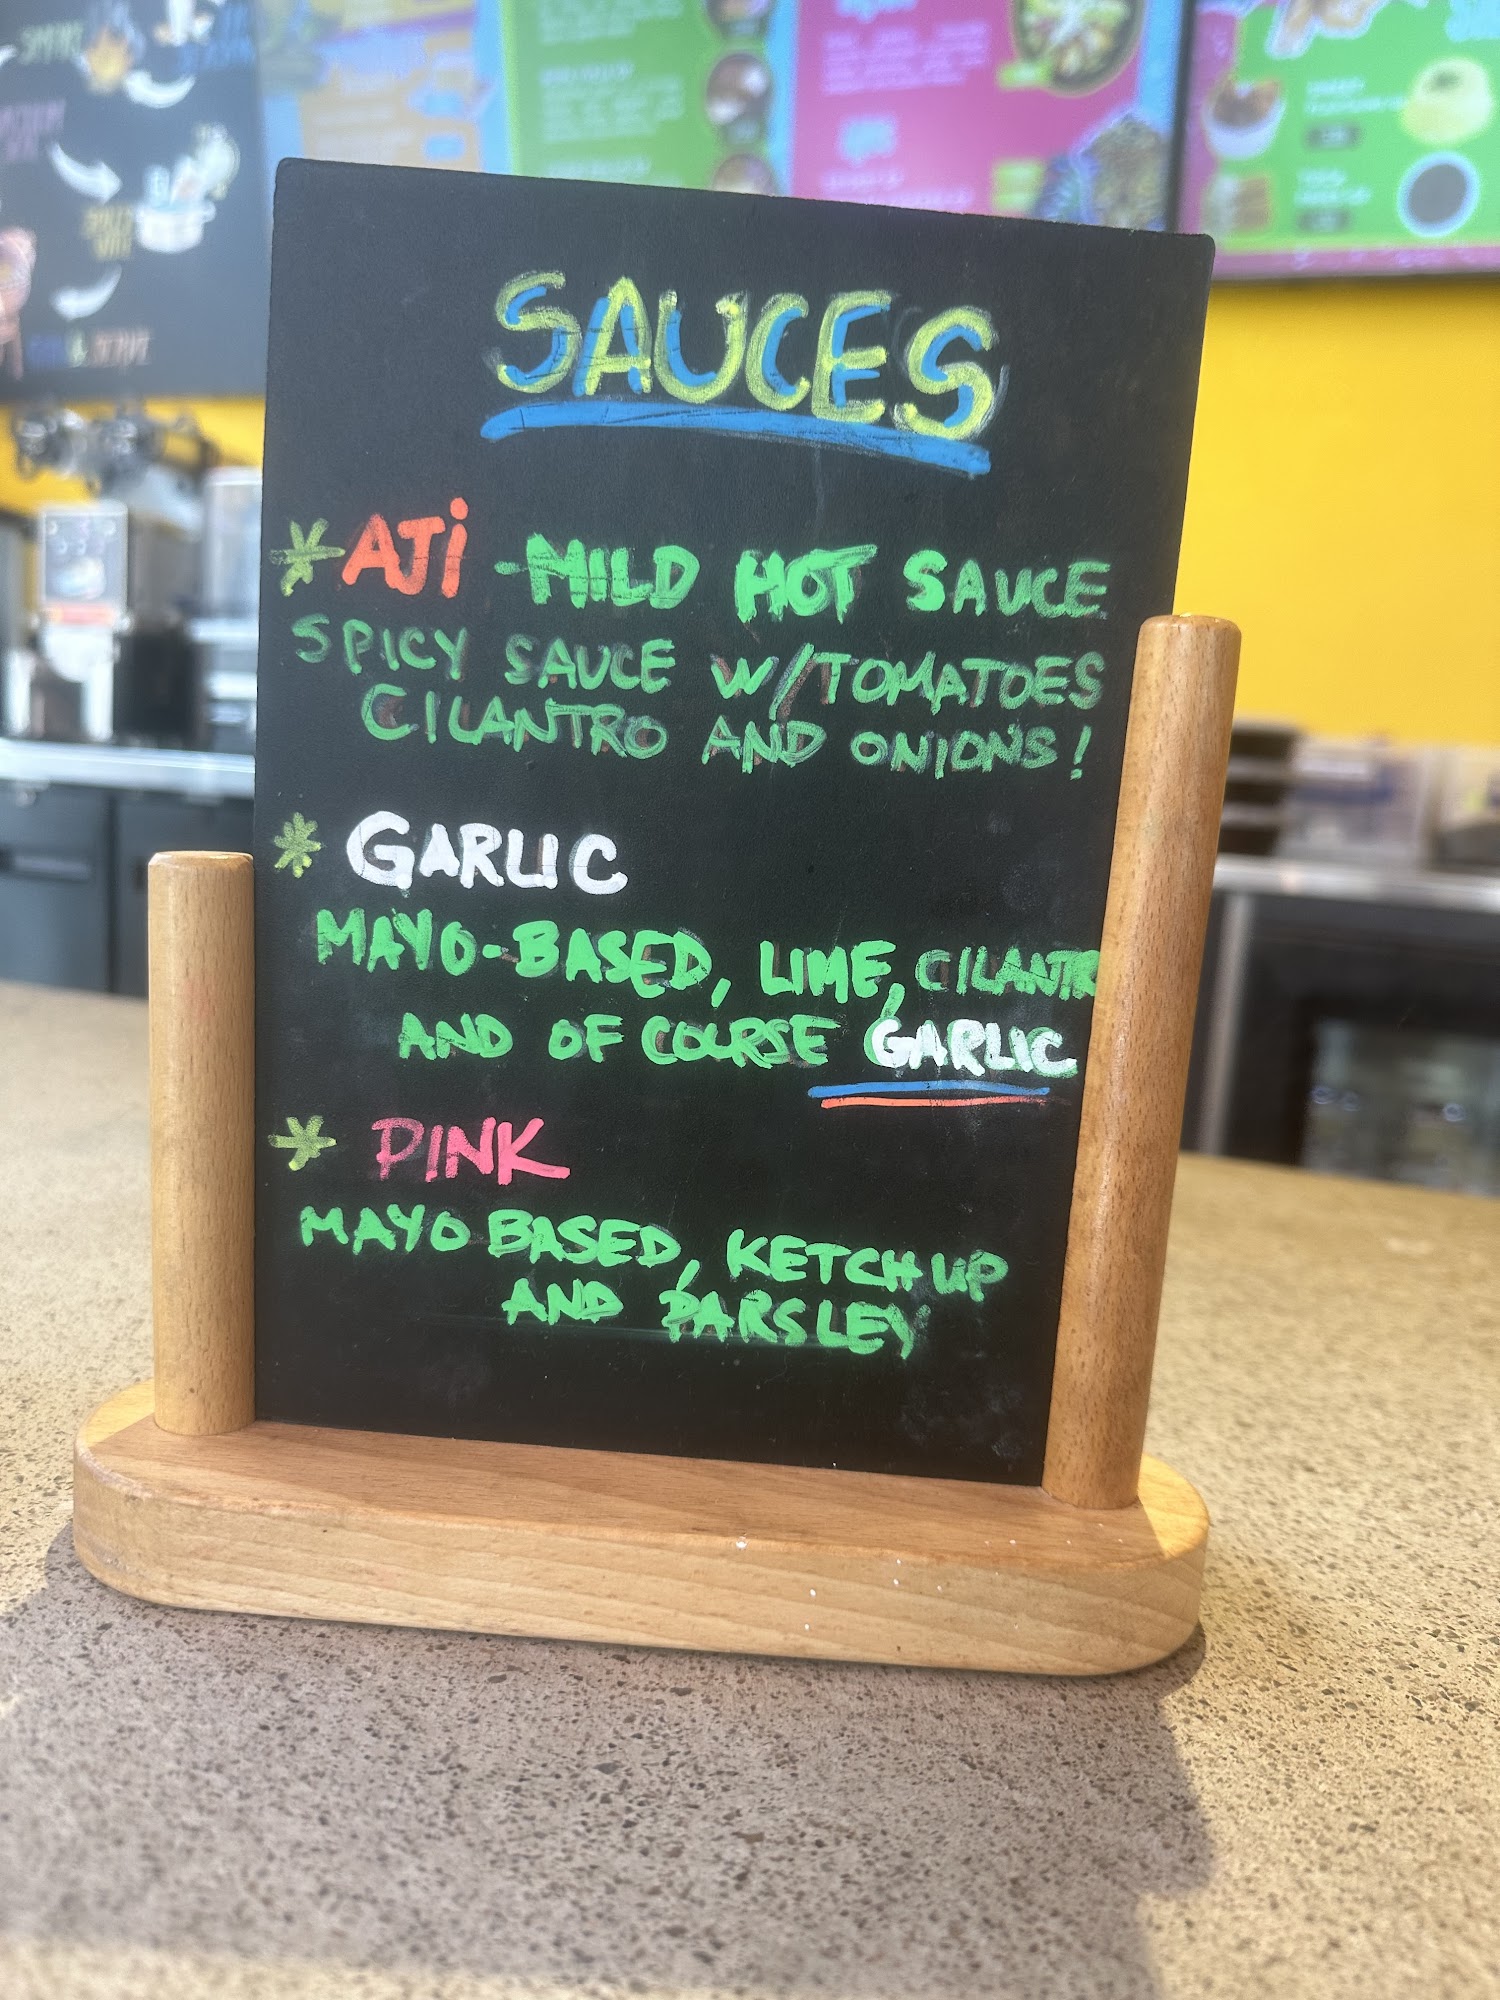 SAUCES
* AJi - MILD HOT SAUCE
SPICY SAUCE W/TOMATOES
CILANTRO AND ONIONS!
* GARLIC
MAYO-BASED, LIME, CILANTR
AND OF COURSE GARLIC
* PINK
MAYO BASED, KETCHUP
AND PARSLEY